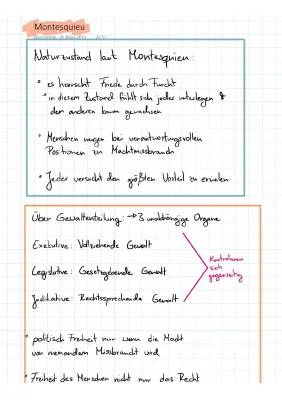 Montesquieu
Naturzustand laut Montesquieu:
• es herrscht Friede durch Furcht
• in diesem Zustand fühlt sich jeder unterlegen &
dem anderen kaum gewachsen
• Menschen neigen bei verantwortungsvollen
Positionen zu Machtmissbrauch
• Jeder versucht den größten Vorteil zu erzielen
Über Gewaltenteilung: → 3 unabhängige Organe
Exekutive: Vollziehende Gewalt
Legislative: Gesetzgebende Gewalt
Judikative: Rechtssprechende Gewalt
Kontrollieren
sich
gegenseitig
• politisch Freiheit nur wenn die Macht
von niemandem Missbraucht wird
• Freiheit des Menschen nicht nur das Recht